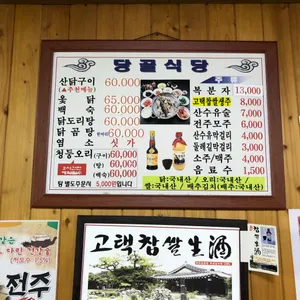 당골식당
산닭구이 60,000
(▲추천메뉴)
옻닭 65,000
백숙 60,000
닭도리탕 60,000
닭곰탕 한마리 60,000
염소 싯가
청둥오리 (구이) 60,000
(탕) 60,000
(백숙) 60,000
닭 별도주문시 5,000원입니다
주류
복분자 13,000
고택찹쌀생주 8,000
산수유술 7,000
전주모주 6,000
산수유막걸리 4,000
둘레길막걸리 4,000
소주/맥주 4,000
음료수 1,500
닭:국내산 / 오리:국내산 /
쌀:국내산 / 배추김치(배추:국내산)
고택찹쌀生酒
전주